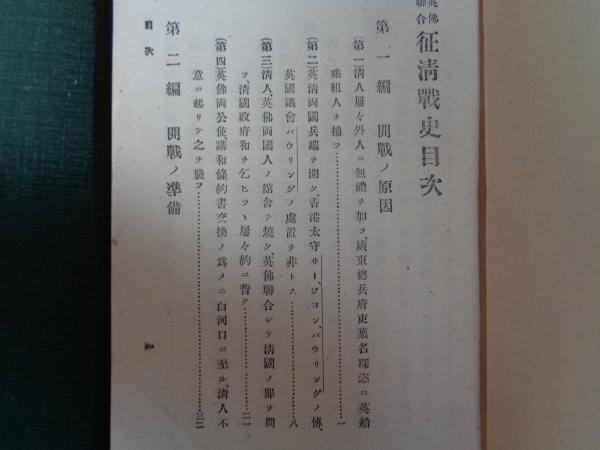 英佛
聯合 征清戰史目次
第一編 開戰ノ原因
(第一)清人屢々外人ニ無禮ヲ加フ、廣東總兵府吏葉名琛恣ニ英船
乘組人ヲ捕フ……一
(第二)英清両國兵端ヲ開ク、香港太守サー、ジヨン、バウリングノ傳、
英國議會バウリングノ處置ヲ非トス……八
(第三)清人、英佛両國人ノ館舍ヲ燒ク、英佛聯合シテ清國ノ罪ヲ問
フ、清國政府和ヲ乞ヒツヽ屢々約ニ背ク……二一
(第四)英佛両公使、講和條約書交換ノ爲メニ白河口ニ至ル、清人不
意ニ起リテ之ヲ襲フ……三二
第二編 開戰ノ準備
目次